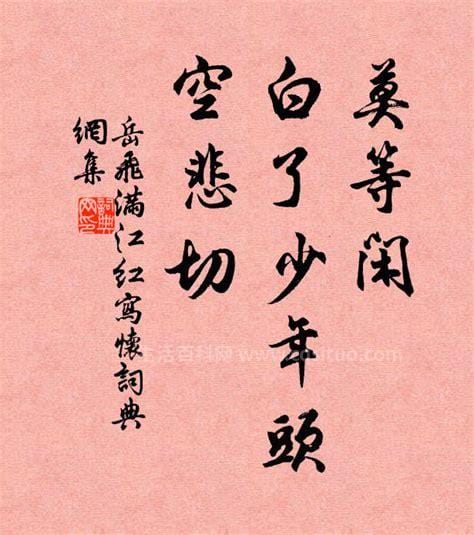 莫等闲
白了少年頭
空悲切
岳飛满江红寫懷詞典
網集
生活百科网 www.